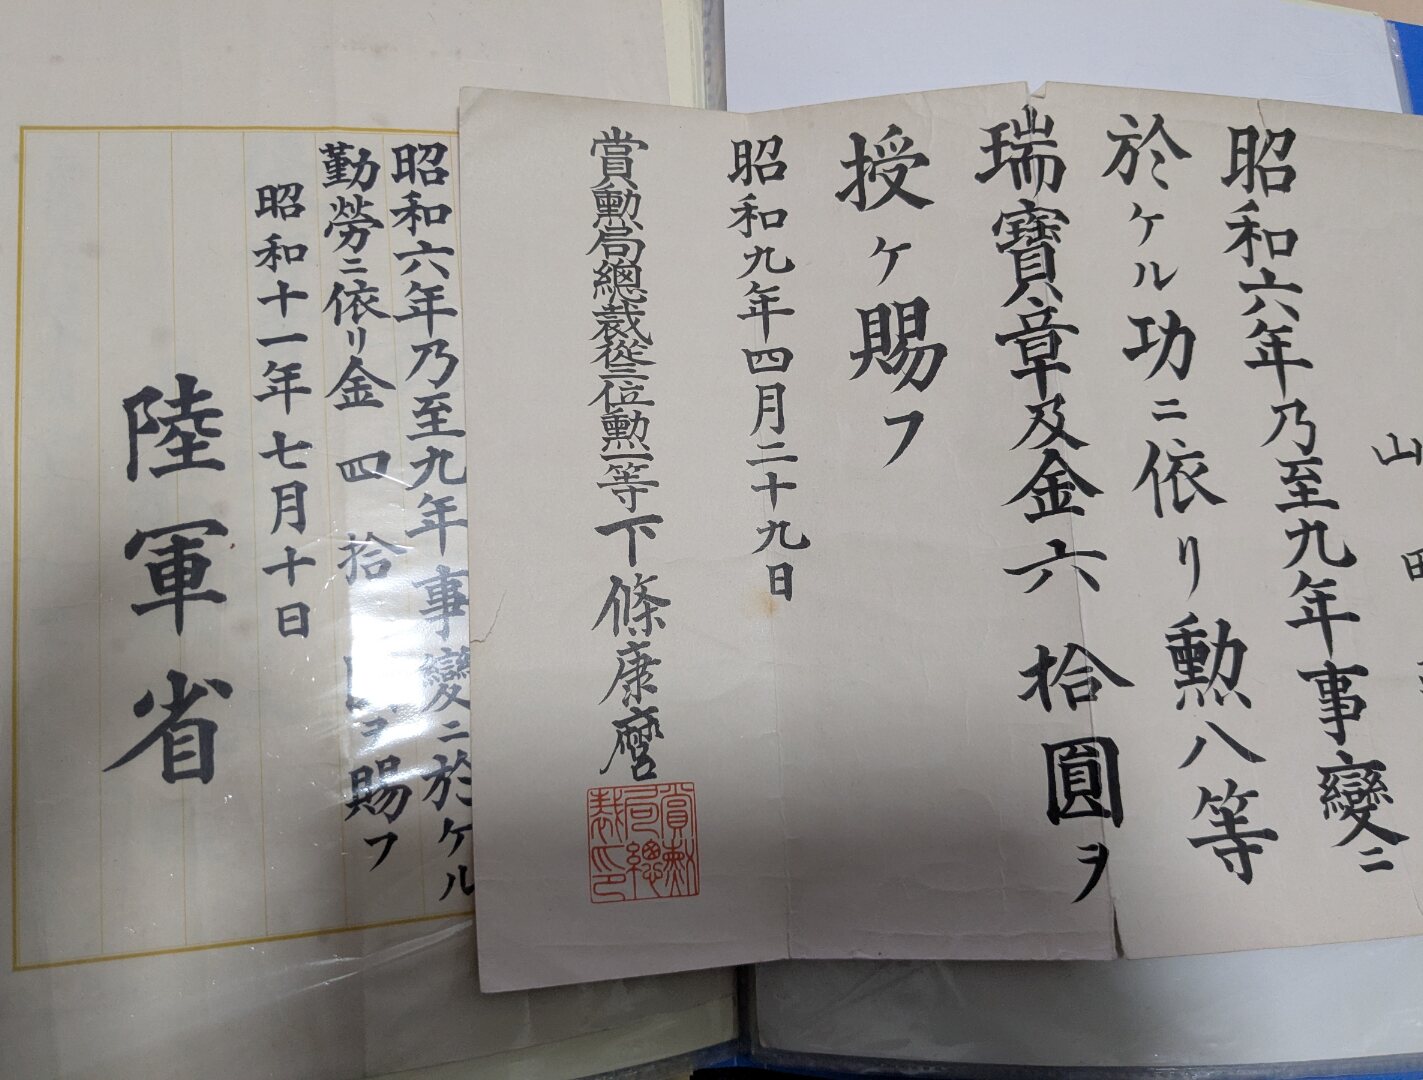 山
昭和六年乃至九年事變ニ
於ケル功ニ依リ勲八等
瑞寶章及金六拾圓ヲ
授ケ賜フ
昭和九年四月二十九日
賞勲局總裁從三位勲一等下條康麿
賞勲
局總
裁印
昭和六年乃至九年事變ニ於ケル
勤勞ニ依リ金四拾ヲ賜フ
昭和十一年七月十日
陸軍省